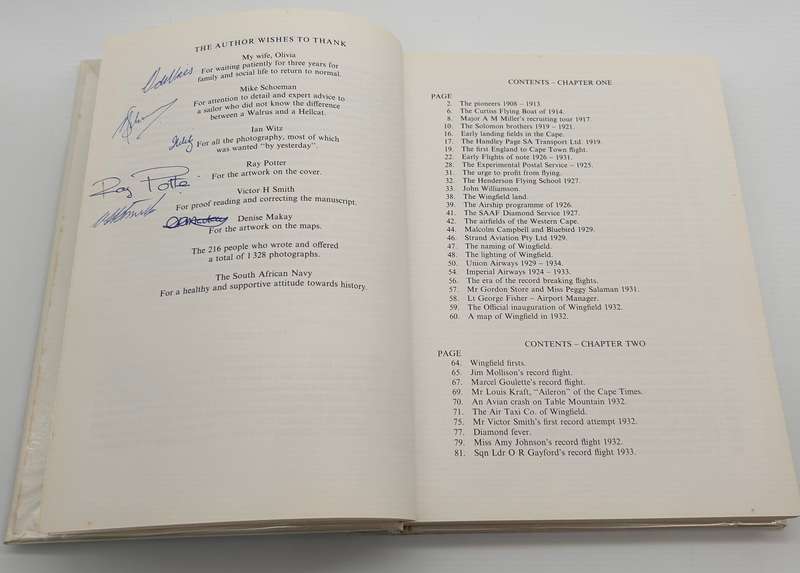 THE AUTHOR WISHES TO THANK
My wife, Olivia
For waiting patiently for three years for
family and social life to return to normal.
Mike Schoeman
For attention to detail and expert advice to
a sailor who did not know the difference
between a Walrus and a Hellcat.
Ian Witz
For all the photography, most of which
was wanted "by yesterday".
Ray Potter
For the artwork on the cover.
Ray Potter
Victor H Smith
For proof reading and correcting the manuscript.
Denise Makay
For the artwork on the maps.
The 216 people who wrote and offered
a total of 1 328 photographs.
The South African Navy
For a healthy and supportive attitude towards history.
CONTENTS – CHAPTER ONE
PAGE
2. The pioneers 1908 – 1913.
6. The Curtiss Flying Boat of 1914.
8. Major A M Miller's recruiting tour 1917.
10. The Solomon brothers 1919 – 1921.
16. Early landing fields in the Cape.
17. The Handley Page SA Transport Ltd. 1919.
19. The first England to Cape Town flight.
22. Early Flights of note 1926 – 1931.
28. The Experimental Postal Service – 1925.
31. The urge to profit from flying.
32. The Henderson Flying School 1927.
33. John Williamson.
38. The Wingfield land.
39. The Airship programme of 1926.
41. The SAAF Diamond Service 1927.
42. The airfields of the Western Cape.
44. Malcolm Campbell and Bluebird 1929.
46. Strand Aviation Pty Ltd 1929.
47. The naming of Wingfield.
48. The lighting of Wingfield.
50. Union Airways 1929 – 1934.
54. Imperial Airways 1924 – 1933.
56. The era of the record breaking flights.
57. Mr Gordon Store and Miss Peggy Salaman 1931.
58. Lt George Fisher – Airport Manager.
59. The Official inauguration of Wingfield 1932.
60. A map of Wingfield in 1932.
CONTENTS – CHAPTER TWO
PAGE
64. Wingfield firsts.
65. Jim Mollison's record flight.
67. Marcel Goulette's record flight.
69. Mr Louis Kraft, "Aileron" of the Cape Times.
70. An Avian crash on Table Mountain 1932.
71. The Air Taxi Co. of Wingfield.
75. Mr Victor Smith's first record attempt 1932.
77. Diamond fever.
79. Miss Amy Johnson's record flight 1932.
81. Sqn Ldr O R Gayford's record flight 1933.